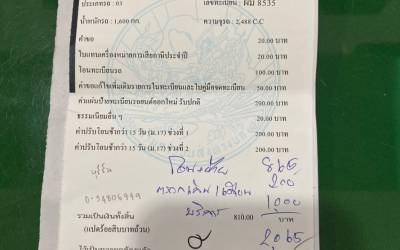 ประเภทรถ : 03 เลขทะเบียน : ผม 8535
น้ำหนักรถ : 1,600 กก. ความจุรถ : 2,488 C.C
ค่าขอ 20.00 บาท
ใบแทนเครื่องหมายการเสียภาษีประจำปี 20.00 บาท
โอนทะเบียนรถ 100.00 บาท
ค่าขอแก้ไขเพิ่มเติมรายการในทะเบียนและใบคู่มือจดทะเบียน 50.00 บาท
ค่าแผ่นป้ายทะเบียนรถยนต์ออกใหม่ รับปกติ 200.00 บาท
ธรรมเนียมอื่น ๆ 20.00 บาท
ค่าปรับโอนช้ากว่า 15 วัน (ม.17) ช่วงที่ 1 200.00 บาท
ค่าปรับโอนช้ากว่า 15 วัน (ม.17) ช่วงที่ 2 200.00 บาท
865
200
บริการ 1,000
รวมเป็นเงินทั้งสิ้น 810.00 บาท
(แปดร้อยสิบบาทถ้วน)
2,065